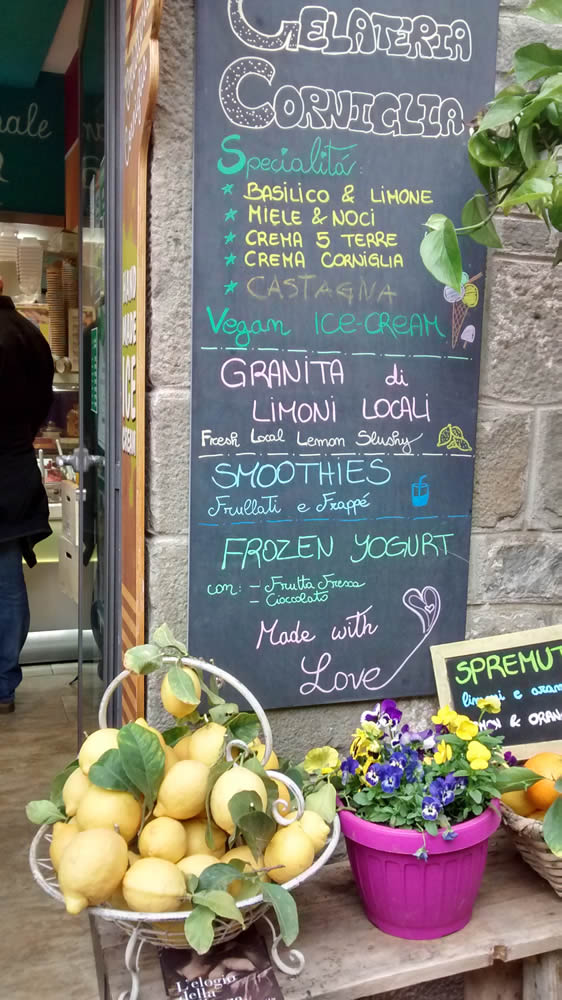 GELATERIA
CORNIGLIA
Specialitá:
BASILICO & LIMONE
MIELE & NOCI
CREMA 5 TERRE
CREMA CORNIGLIA
CASTAGNA
Vegan ICE-CREAM
GRANITA di
LIMONI LOCALI
Fresh Local Lemon Slushy
SMOOTHIES
Frullati e Frappé
FROZEN YOGURT
con: - Frutta Fresca
- Cioccolato
Made with
Love
SPREMUT
limoni e aran
MON & ORAN
L'elogio
della
nale
ICE
CREAM